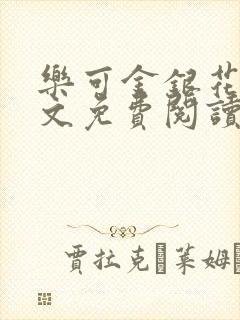 樂可金銀花
文免費閱讀
賈拉克·萊姆